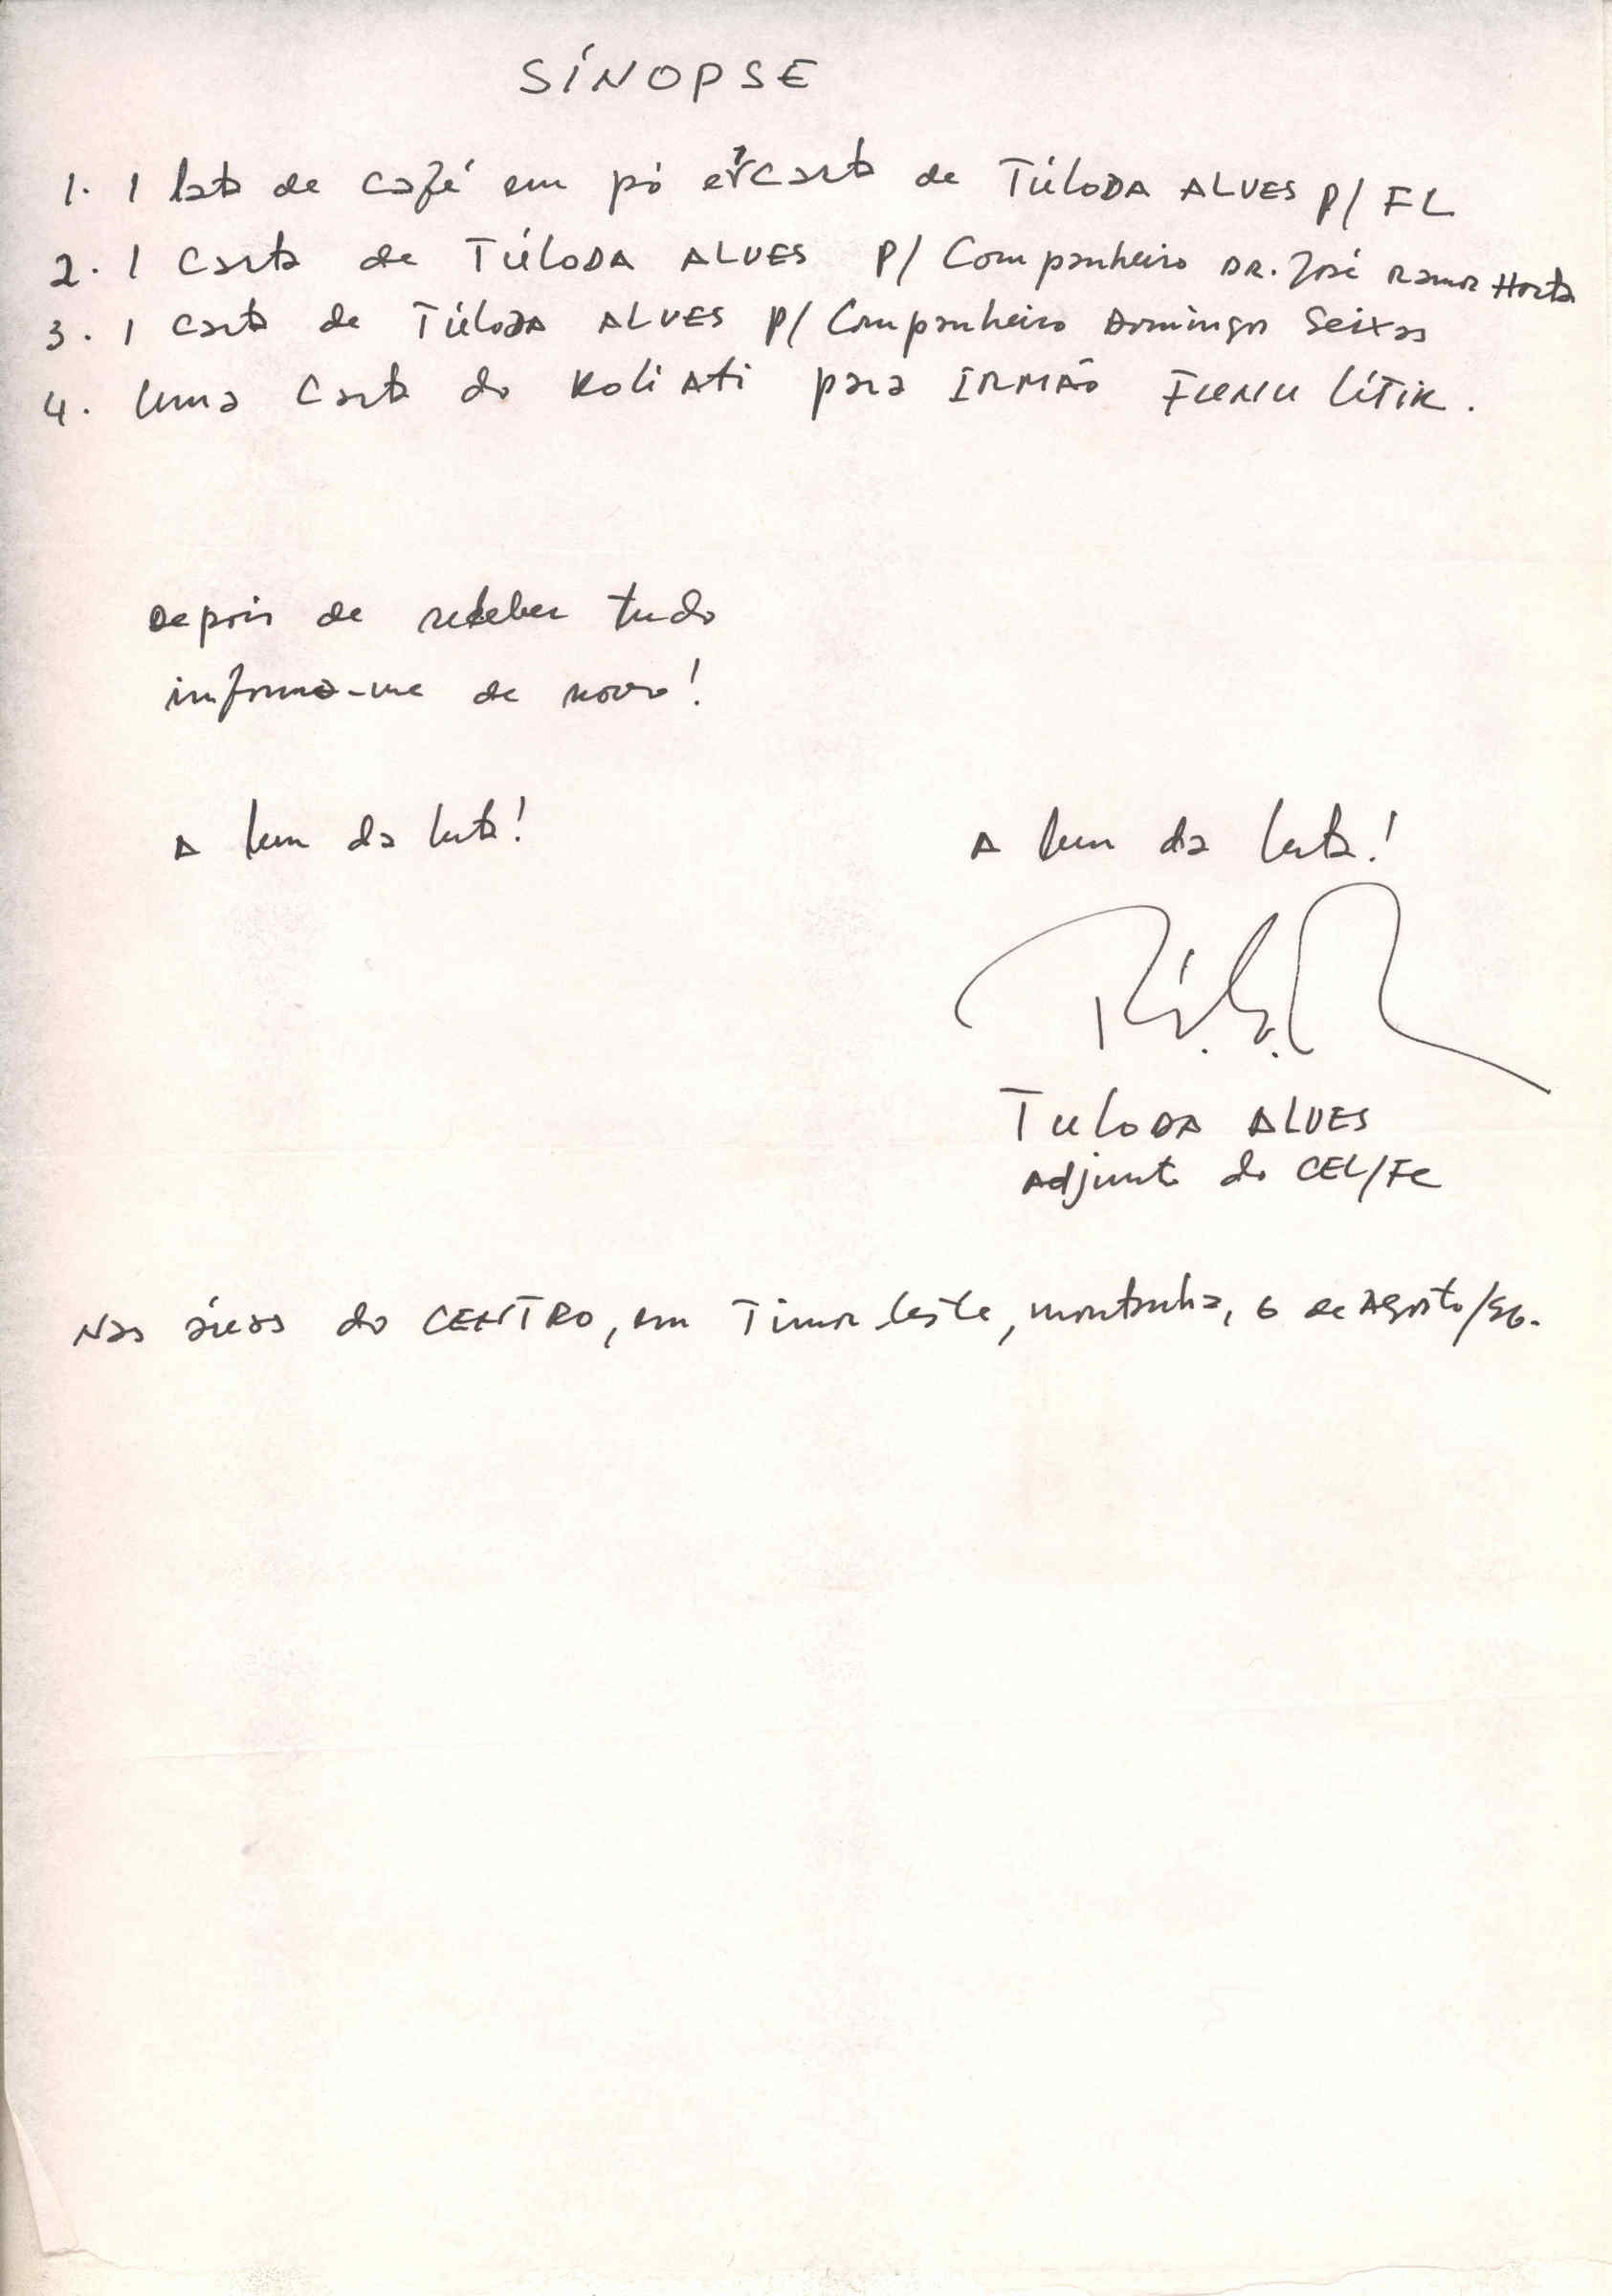 SÍNOPSE
1. 1 lata de café em pó e 1 carta de TÚLODA ALVES P/ FL
2. 1 Carta de TÚLODA ALVES P/ Companheiro DR. José Ramos Horta
3. 1 carta de TÚLODA ALVES P/ Companheiro Domingos Seixas
4. Uma Carta do Koliati para IRMÃO FUNU LÍTIK.
Depois de receber tudo
informa-me de novo!
A bem da luta!
A bem da luta!
TULODA ALVES
Adjunto do CEL/FL
Nas áreas do CENTRO, em Timor Leste, montanha, 6 de Agosto/96.